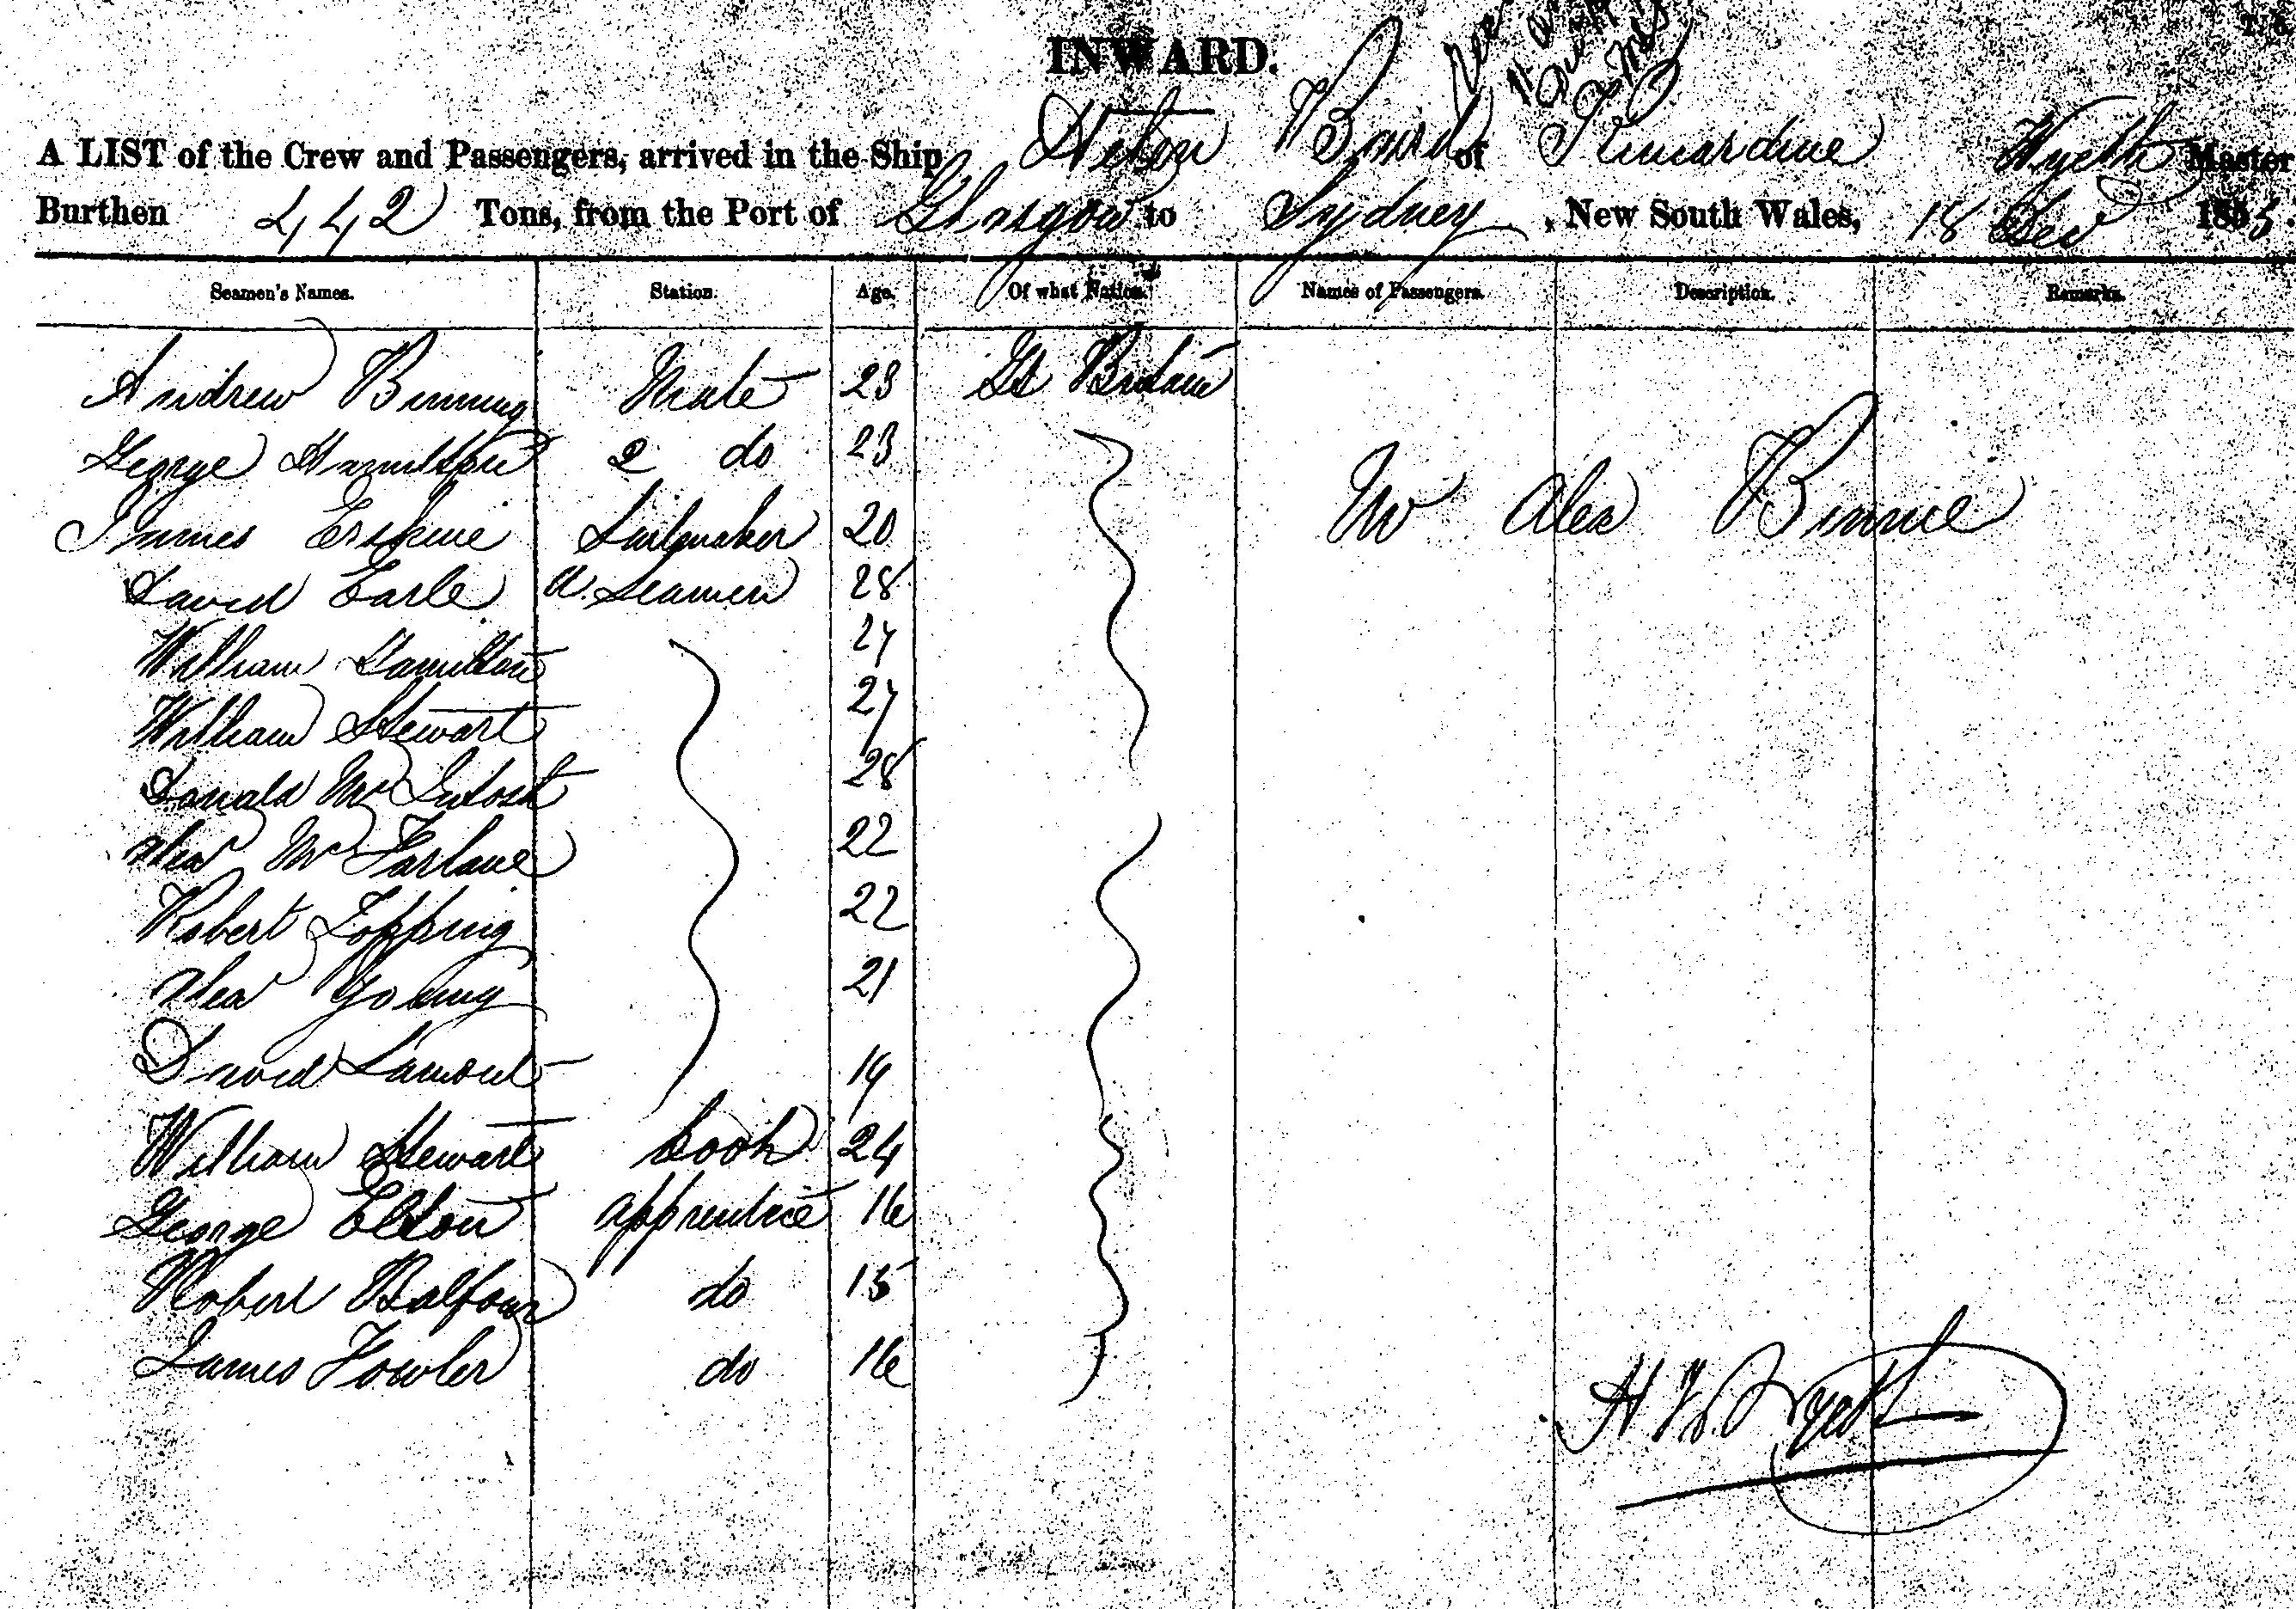 INWARD.
A LIST of the Crew and Passengers, arrived in the Ship Helen Baird of Kincardine Wyeth Master
Burthen 442 Tons, from the Port of Glasgow to Sydney, New South Wales, 18 Dec 1855.
Seamen's Names. Station. Age. Of what Nation. Names of Passengers. Description. Remarks.
Andrew Binning Mate 23 Gt Britain
George Hamilton 2 do 23
Mr Alex Binnie
James Erskine Sailmaker 20
David Earle A. Seamen 28
William Hamilton 27
William Stewart 27
Donald McIntosh 28
Alex McFarlane 22
Robert Topping 22
Alex Young 21
David Lamont 19
William Stewart Cook 24
George Elton apprentice 16
Robert Balfour do 15
James Fowler do 16